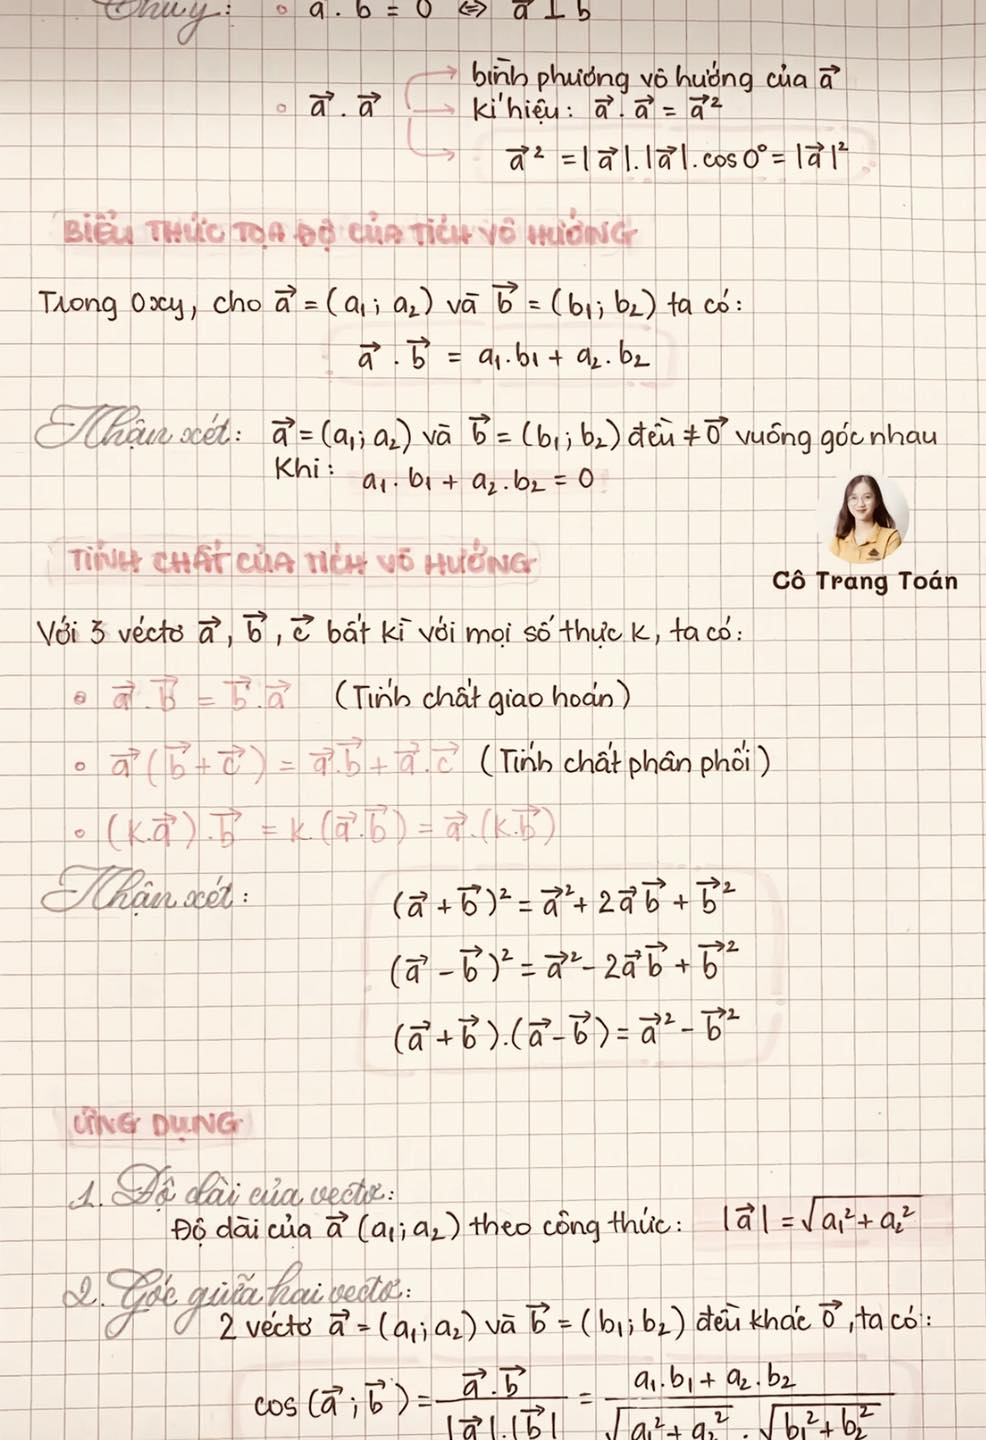 Chú ý: ∘ a . b = 0 ⇔ a ⊥ b
bình phương vô hướng của a⃗
∘ a⃗ . a⃗
kí hiệu: a⃗ . a⃗ = a⃗²
a⃗² = |a⃗|.|a⃗|.cos0° = |a⃗|²
BIỂU THỨC TỌA ĐỘ CỦA TÍCH VÔ HƯỚNG
Trong Oxy, cho a⃗ = (a₁; a₂) và b⃗ = (b₁; b₂) ta có:
a⃗ . b⃗ = a₁.b₁ + a₂.b₂
Nhận xét: a⃗ = (a₁; a₂) và b⃗ = (b₁; b₂) đều ≠ 0⃗ vuông góc nhau
Khi: a₁.b₁ + a₂.b₂ = 0
TÍNH CHẤT CỦA TÍCH VÔ HƯỚNG
Cô Trang Toán
Với 3 véctơ a⃗, b⃗, c⃗ bất kì với mọi số thực k, ta có:
∘ a⃗.b⃗ = b⃗.a⃗ (Tính chất giao hoán)
∘ a⃗(b⃗ + c⃗) = a⃗.b⃗ + a⃗.c⃗ (Tính chất phân phối)
∘ (k.a⃗).b⃗ = k.(a⃗.b⃗) = a⃗.(k.b⃗)
Nhận xét: (a⃗ + b⃗)² = a⃗² + 2a⃗b⃗ + b⃗²
(a⃗ - b⃗)² = a⃗² - 2a⃗b⃗ + b⃗²
(a⃗ + b⃗).(a⃗ - b⃗) = a⃗² - b⃗²
ỨNG DỤNG
1. Độ dài của vectơ:
Độ dài của a⃗ (a₁; a₂) theo công thức: |a⃗| = √(a₁² + a₂²)
2. Góc giữa hai vectơ:
2 véctơ a⃗ = (a₁; a₂) và b⃗ = (b₁; b₂) đều khác 0⃗, ta có:
cos(a⃗; b⃗) = a⃗.b⃗ / |a⃗|.|b⃗| = a₁.b₁ + a₂.b₂ / √(a₁² + a₂²) . √(b₁² + b₂²)